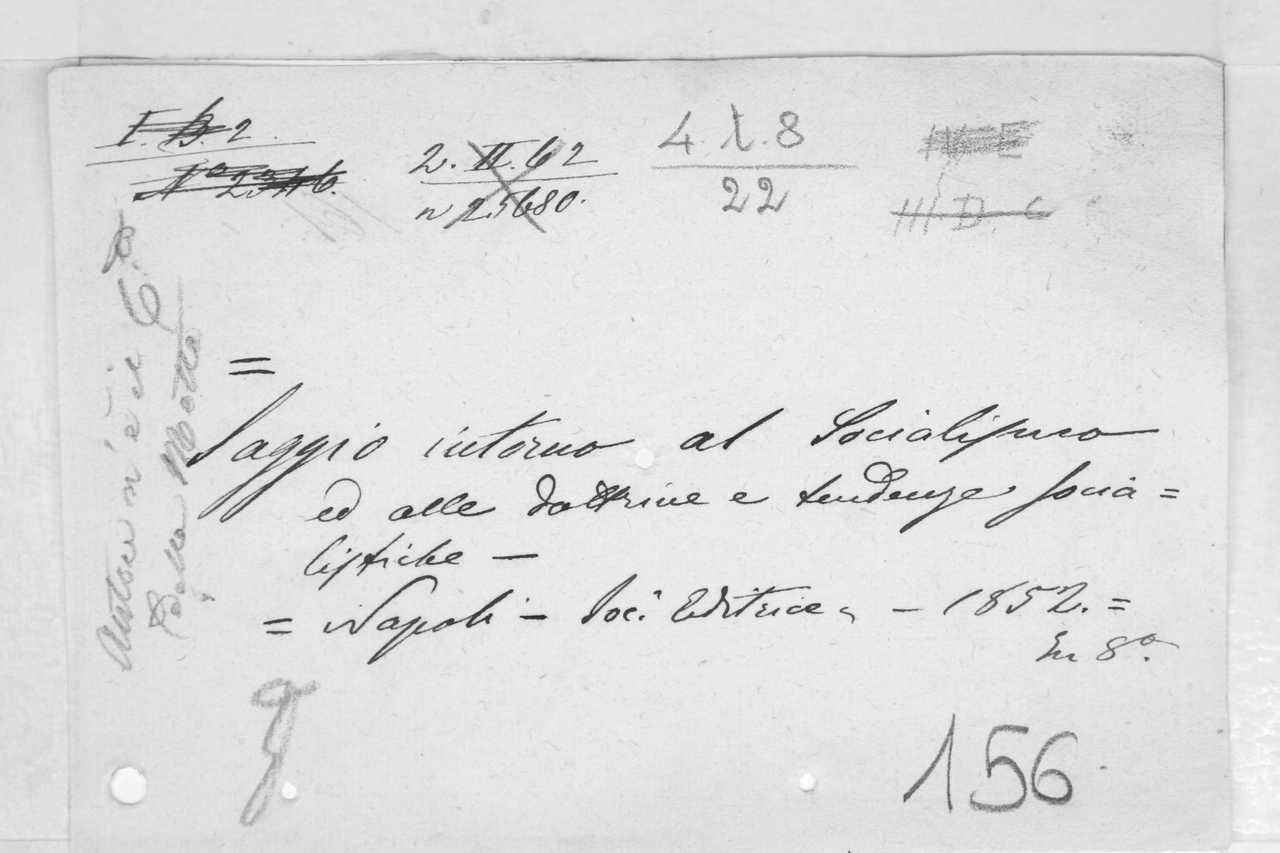 I. B. 2
N° 23116.
2. II. 62
n 25680.
4 l. 8
22
III E
III D. C
Autore n'è il C.te
Della Motta
=
Saggio intorno al Socialismo
ed alle dottrine e tendenze socia=
listiche —
= Napoli — Soc. Editrice, — 1852. =
In 8°.
156